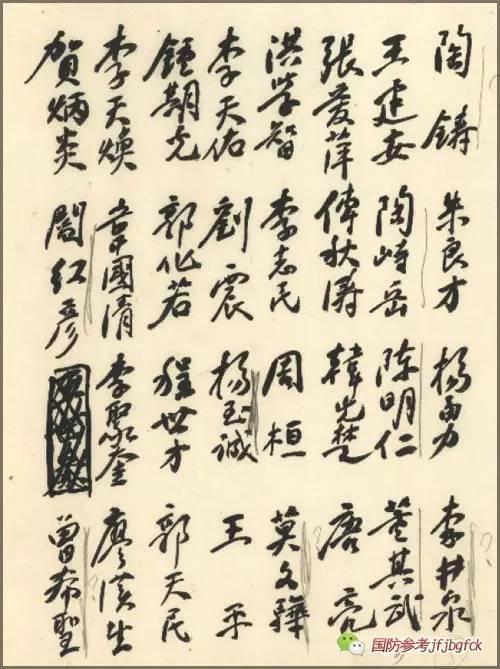 陶鑄 朱良才 楊勇 李井泉
王建安 陶峙岳 陈明仁 董其武
張爱萍 傅秋涛 韓先楚 唐亮
洪学智 李志民 周桓 莫文驊
李天佑 劉震 楊至誠 王平
鍾期光 郭化若 程世才 郭天民
李天煥 韋國清 李聚奎 廖漢生
賀炳炎 閻红彦 曾希聖
国防参考jfjbgfck